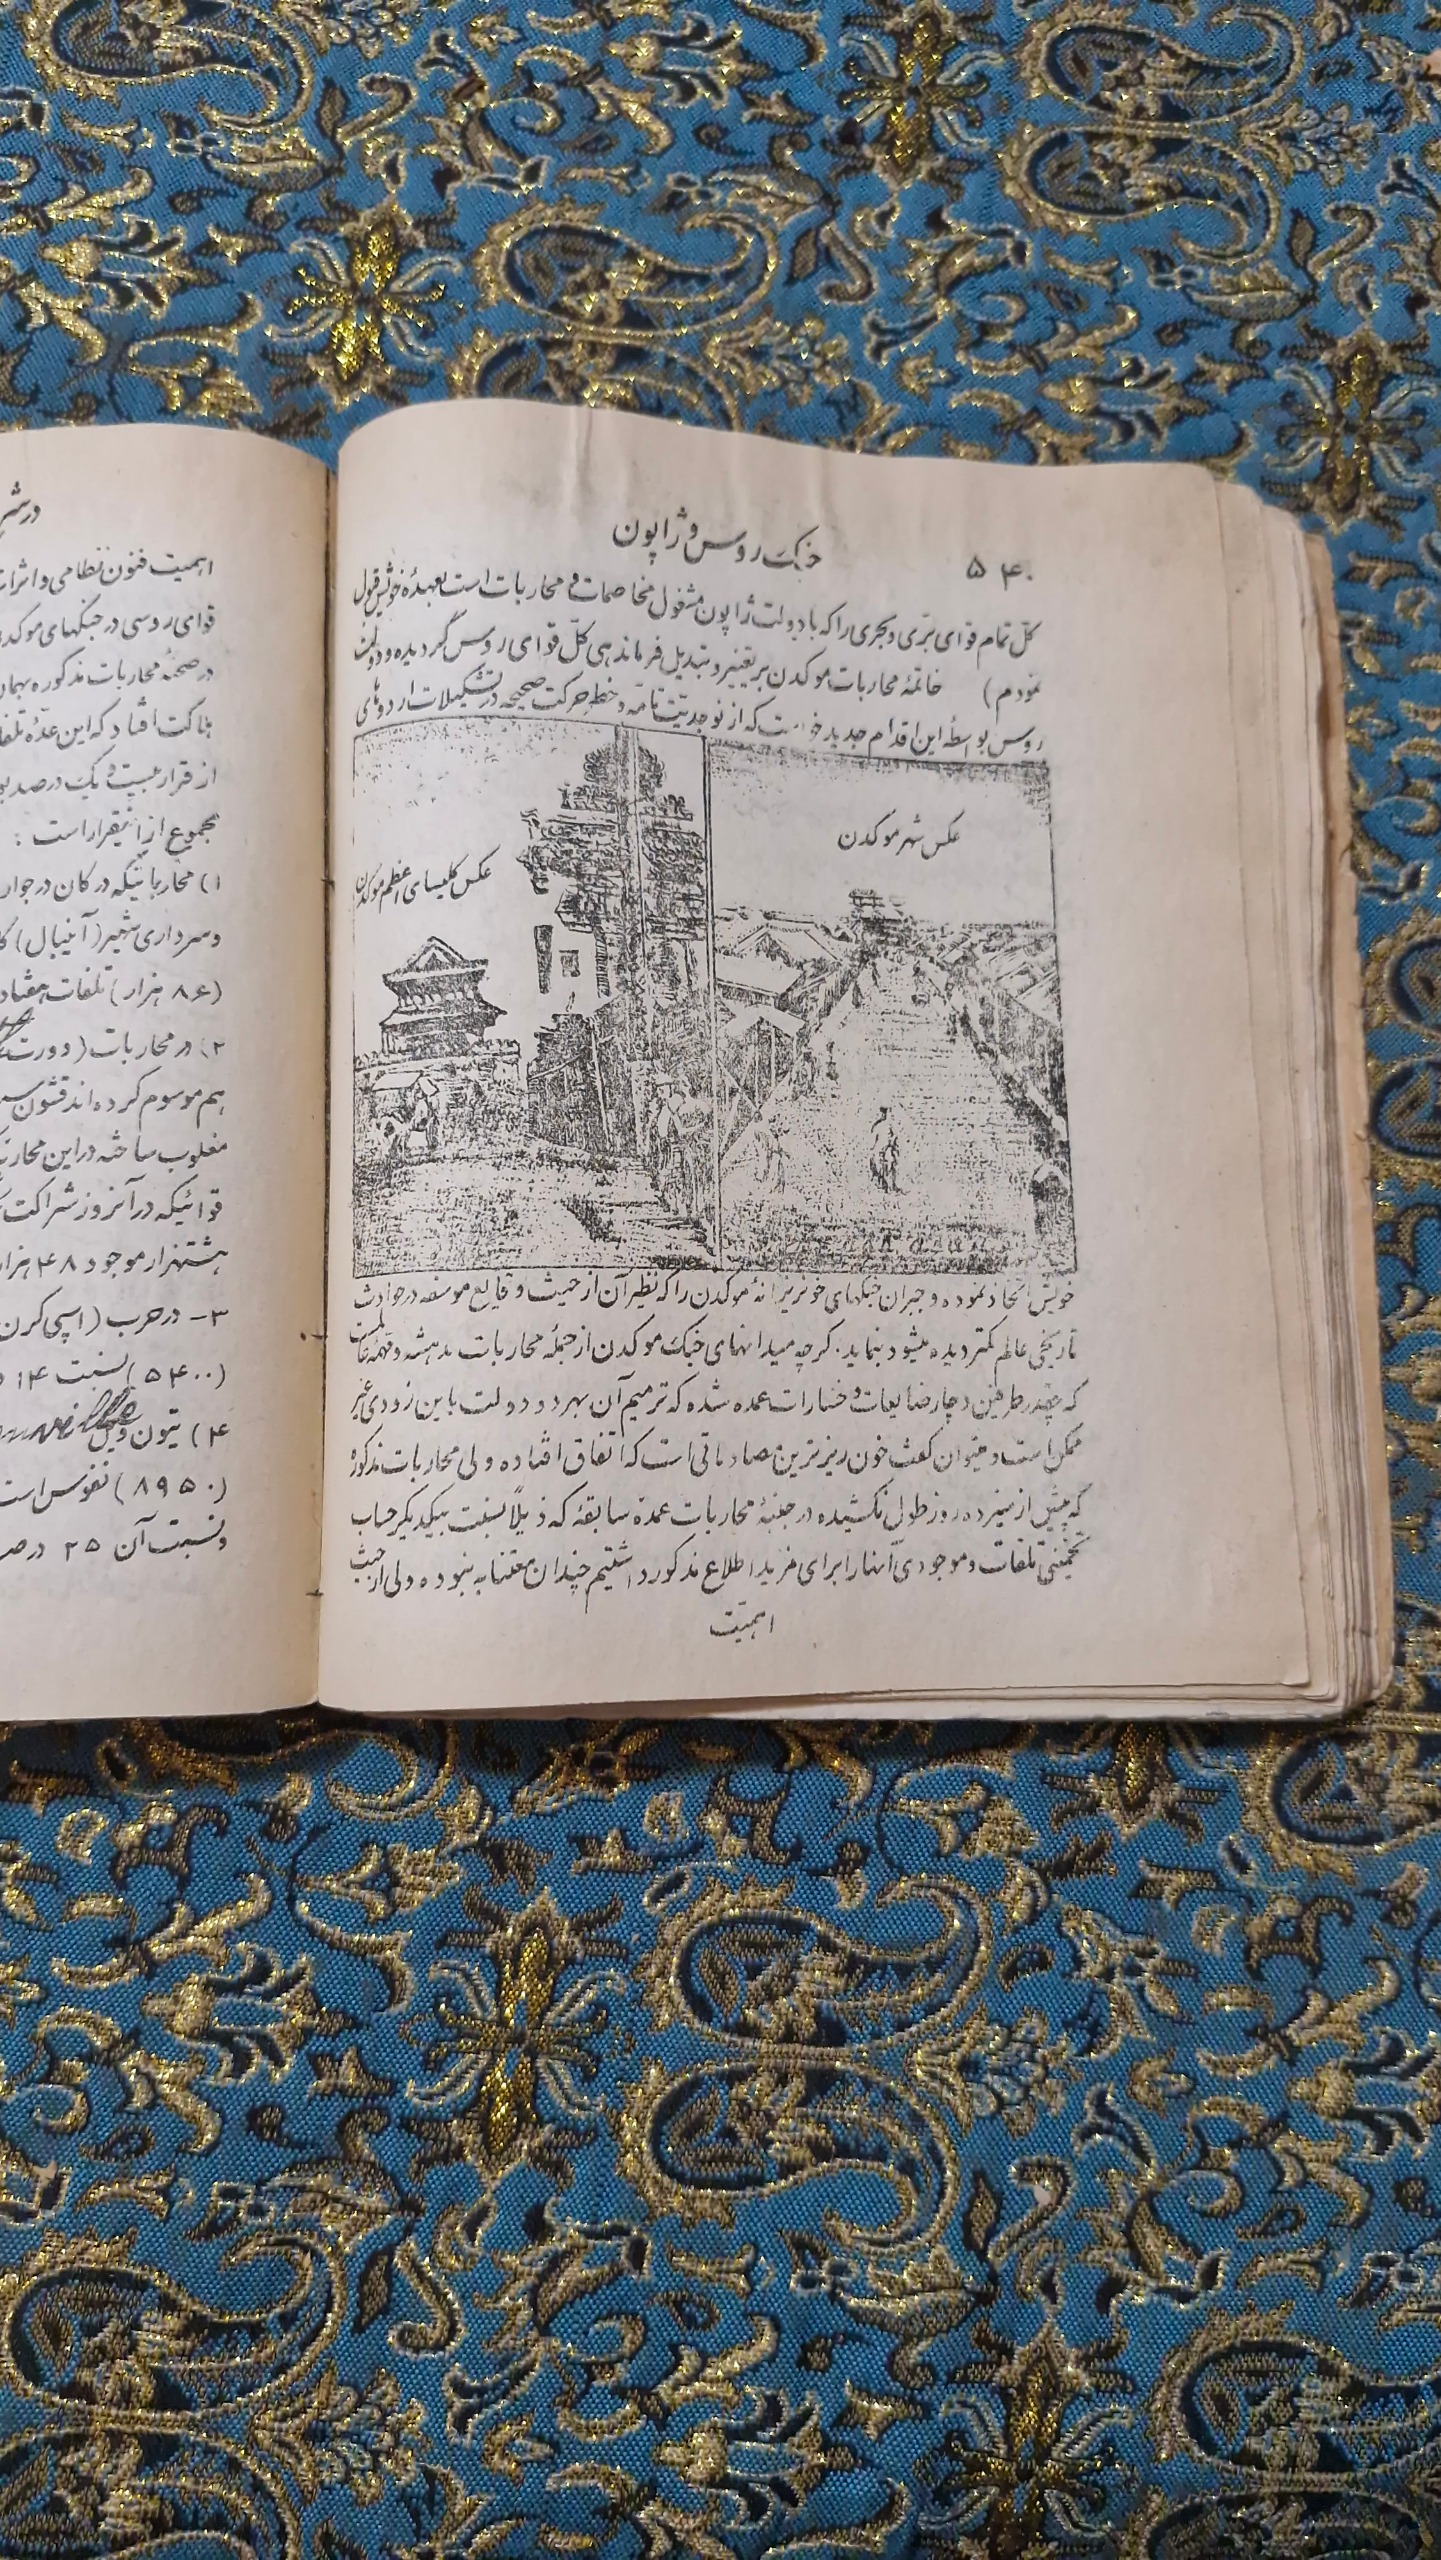 ۵۴۰
جنگ روس و ژاپون
کل تمام قوای برّی و بحری را که با دولت ژاپون مشغول مخاصمات و محاربات است بعهدهٔ خویش قبول
نمودم) خاتمهٔ محاربات موکدن بر تغییر و تبدیل فرماندهی کلّ قوای روس گردیده و دولت
روس بواسطهٔ این اقدام جدید که از نو جدیت تامّه و خط حرکت صحیحه در تشکیلات اردوهای
عکس شهر موکدن
عکس کلیسای اعظم موکدن
خویش اتخاذ نموده و جبران جنگهای خونریزانهٔ موکدن را که نظیر آن از حیث وقایع موسفه در حوادث
تاریخی عالم کمتر دیده میشود بنماید. گرچه میدانهای جنگ موکدن از جمله محاربات مدهشه و
که چندر طرفین دچار ضایعات و خسارات عمده شده که ترمیم آن بهر دو دولت باین زودی غیر
ممکن است و میتوان گفت خون ریزترین مصادماتی است که اتفاق افتاده ولی محاربات مذکوره
که بیش از سیزده روز طول نکشیده در جنبهٔ محاربات عمدهٔ سابقه که ذیلاً بنسبت بیکدیگر حساب
تخمینی تلفات و موجودی آنها را برای مزید اطلاع مذکور داشتیم چندان معتنابه نبوده ولی از حیث
اهمیّت
اهمیت فنون نظامی و اثرات
قوای روسی در جنگهای موکدن
در صحنهٔ محاربات مذکوره بهمان
هلاکت افتاد که این عدّهٔ تلفات
از قرار بیست و یک درصد
مجموع از اینقرار است :
۱) محارباتیکه در کان در جوار
و سرداری شهیر (آنیبال)
(۸۶ هزار) تلفات هفتاد
۲) در محاربات (دورت
هم موسوم کرده‌اند قشون
مغلوب ساخته در این محاربه
قوائیکه در آنروز شراکت
هشتهزار موجود ۴۸ هزار
۳- در حرب (اسپی کرن
(۵۴۰۰) بنسبت ۱۴
۴) تیون ویل
(۸۹۵۰) نفوس است
و نسبت آن ۲۵ درصد